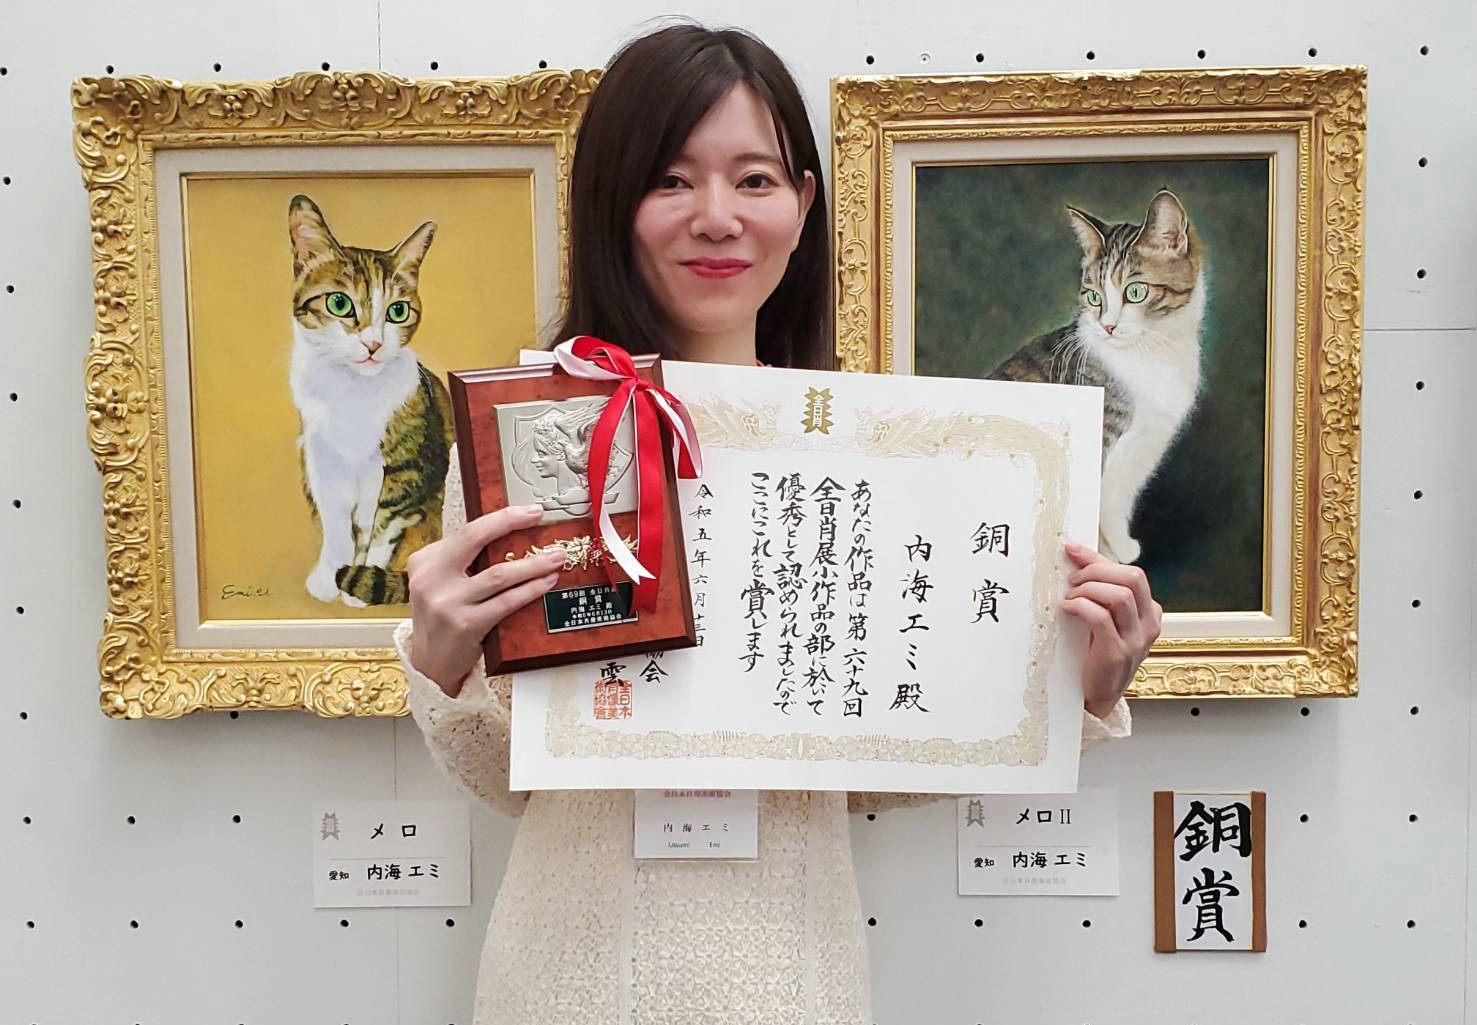 Emi.21
第69回 全日肖展
銅賞
内海 エミ 殿
令和5年6月13日
全日本肖像美術協会
全日肖
銅賞
内海エミ殿
あなたの作品は第六十九回
全日肖展小作品の部に於いて
優秀として認められましたので
ここにこれを賞します
令和五年六月十三日
協会
雲
全日本肖像美術協会
内海 エミ
Utsumi Emi
メロ
愛知 内海 エミ
全日本肖像美術協会
メロ II
愛知 内海 エミ
全日本肖像美術協会
銅賞